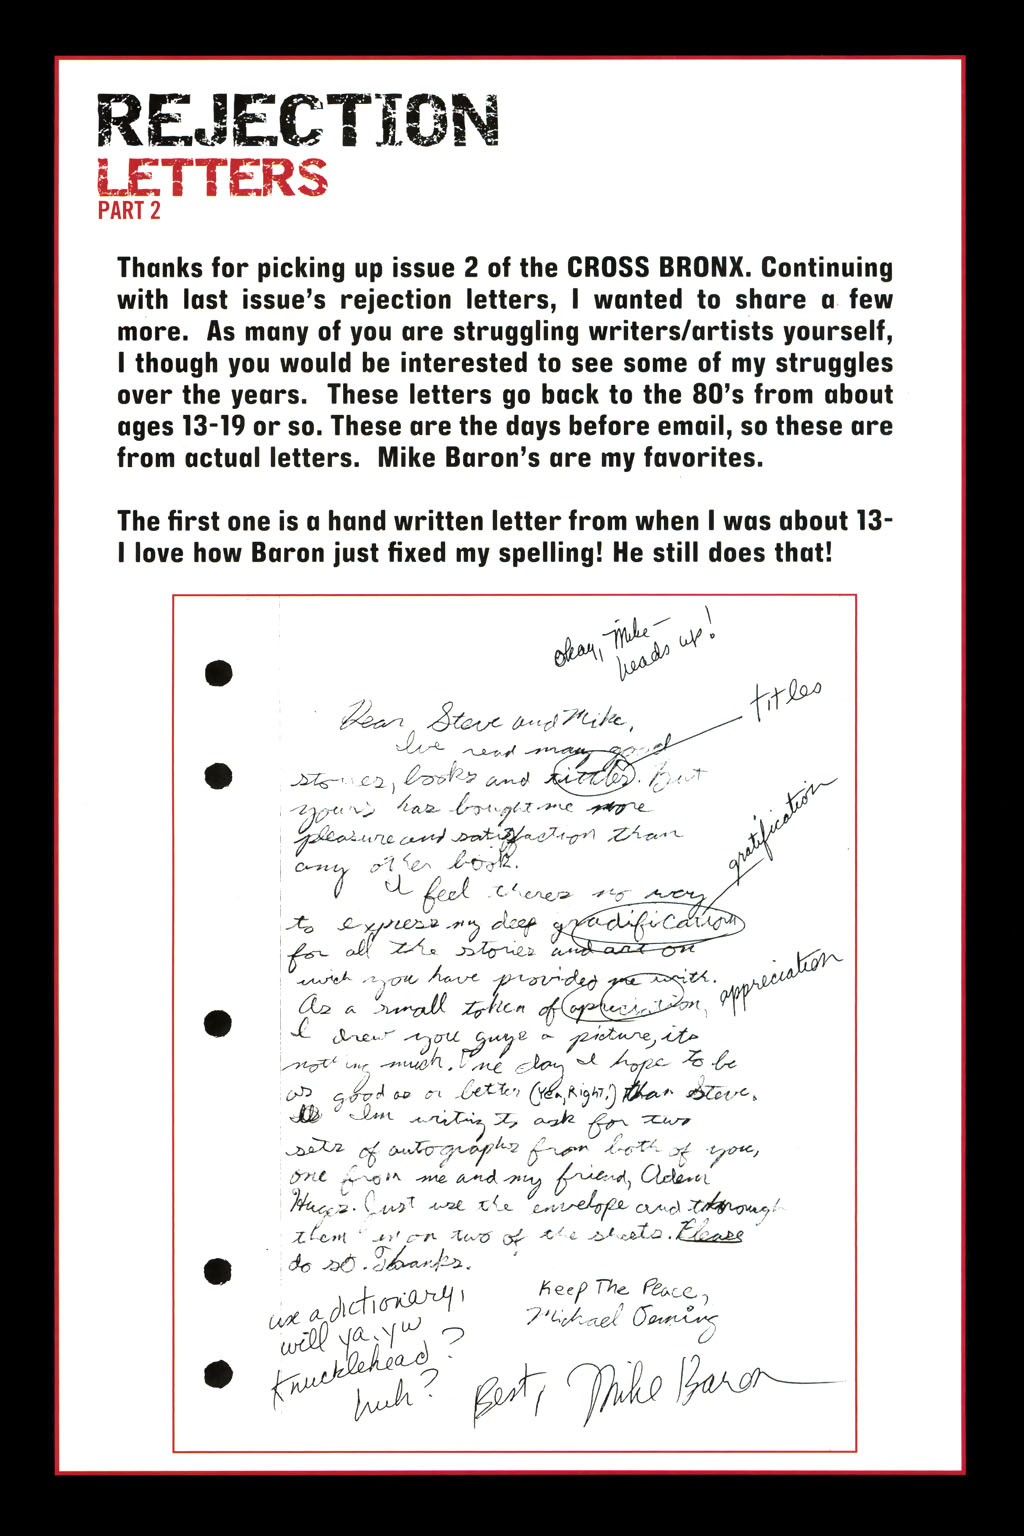 REJECTION
LETTERS
PART 2
Thanks for picking up issue 2 of the CROSS BRONX. Continuing
with last issue's rejection letters, I wanted to share a few
more. As many of you are struggling writers/artists yourself,
I though you would be interested to see some of my struggles
over the years. These letters go back to the 80's from about
ages 13-19 or so. These are the days before email, so these are
from actual letters. Mike Baron's are my favorites.
The first one is a hand written letter from when I was about 13-
I love how Baron just fixed my spelling! He still does that!
okay, Mike—
heads up!
titles
Dear Steve and Mike,
I've read many good
stories, books and tittles. But
yours has bought me more
pleasure and satisfaction than
any other book.
I feel theres no way
gratification
to express my deep gradification
for all the stories and art on
wich you have provided me with.
As a small token of apreciation,
appreciation
I drew you guys a picture, its
nothing much. One day I hope to be
as good as or better (Yea, Right.) than Steve.
Im writing to ask for two
sets of autographs from both of you,
one from me and my friend, Adem
Just use the envelope and
them on two of the sheets. Please
do so. Thanks.
Keep The Peace,
Michael Oeming
use a dictionary,
will ya, yw
Knucklehead?
huh?
Best, Mike Baron